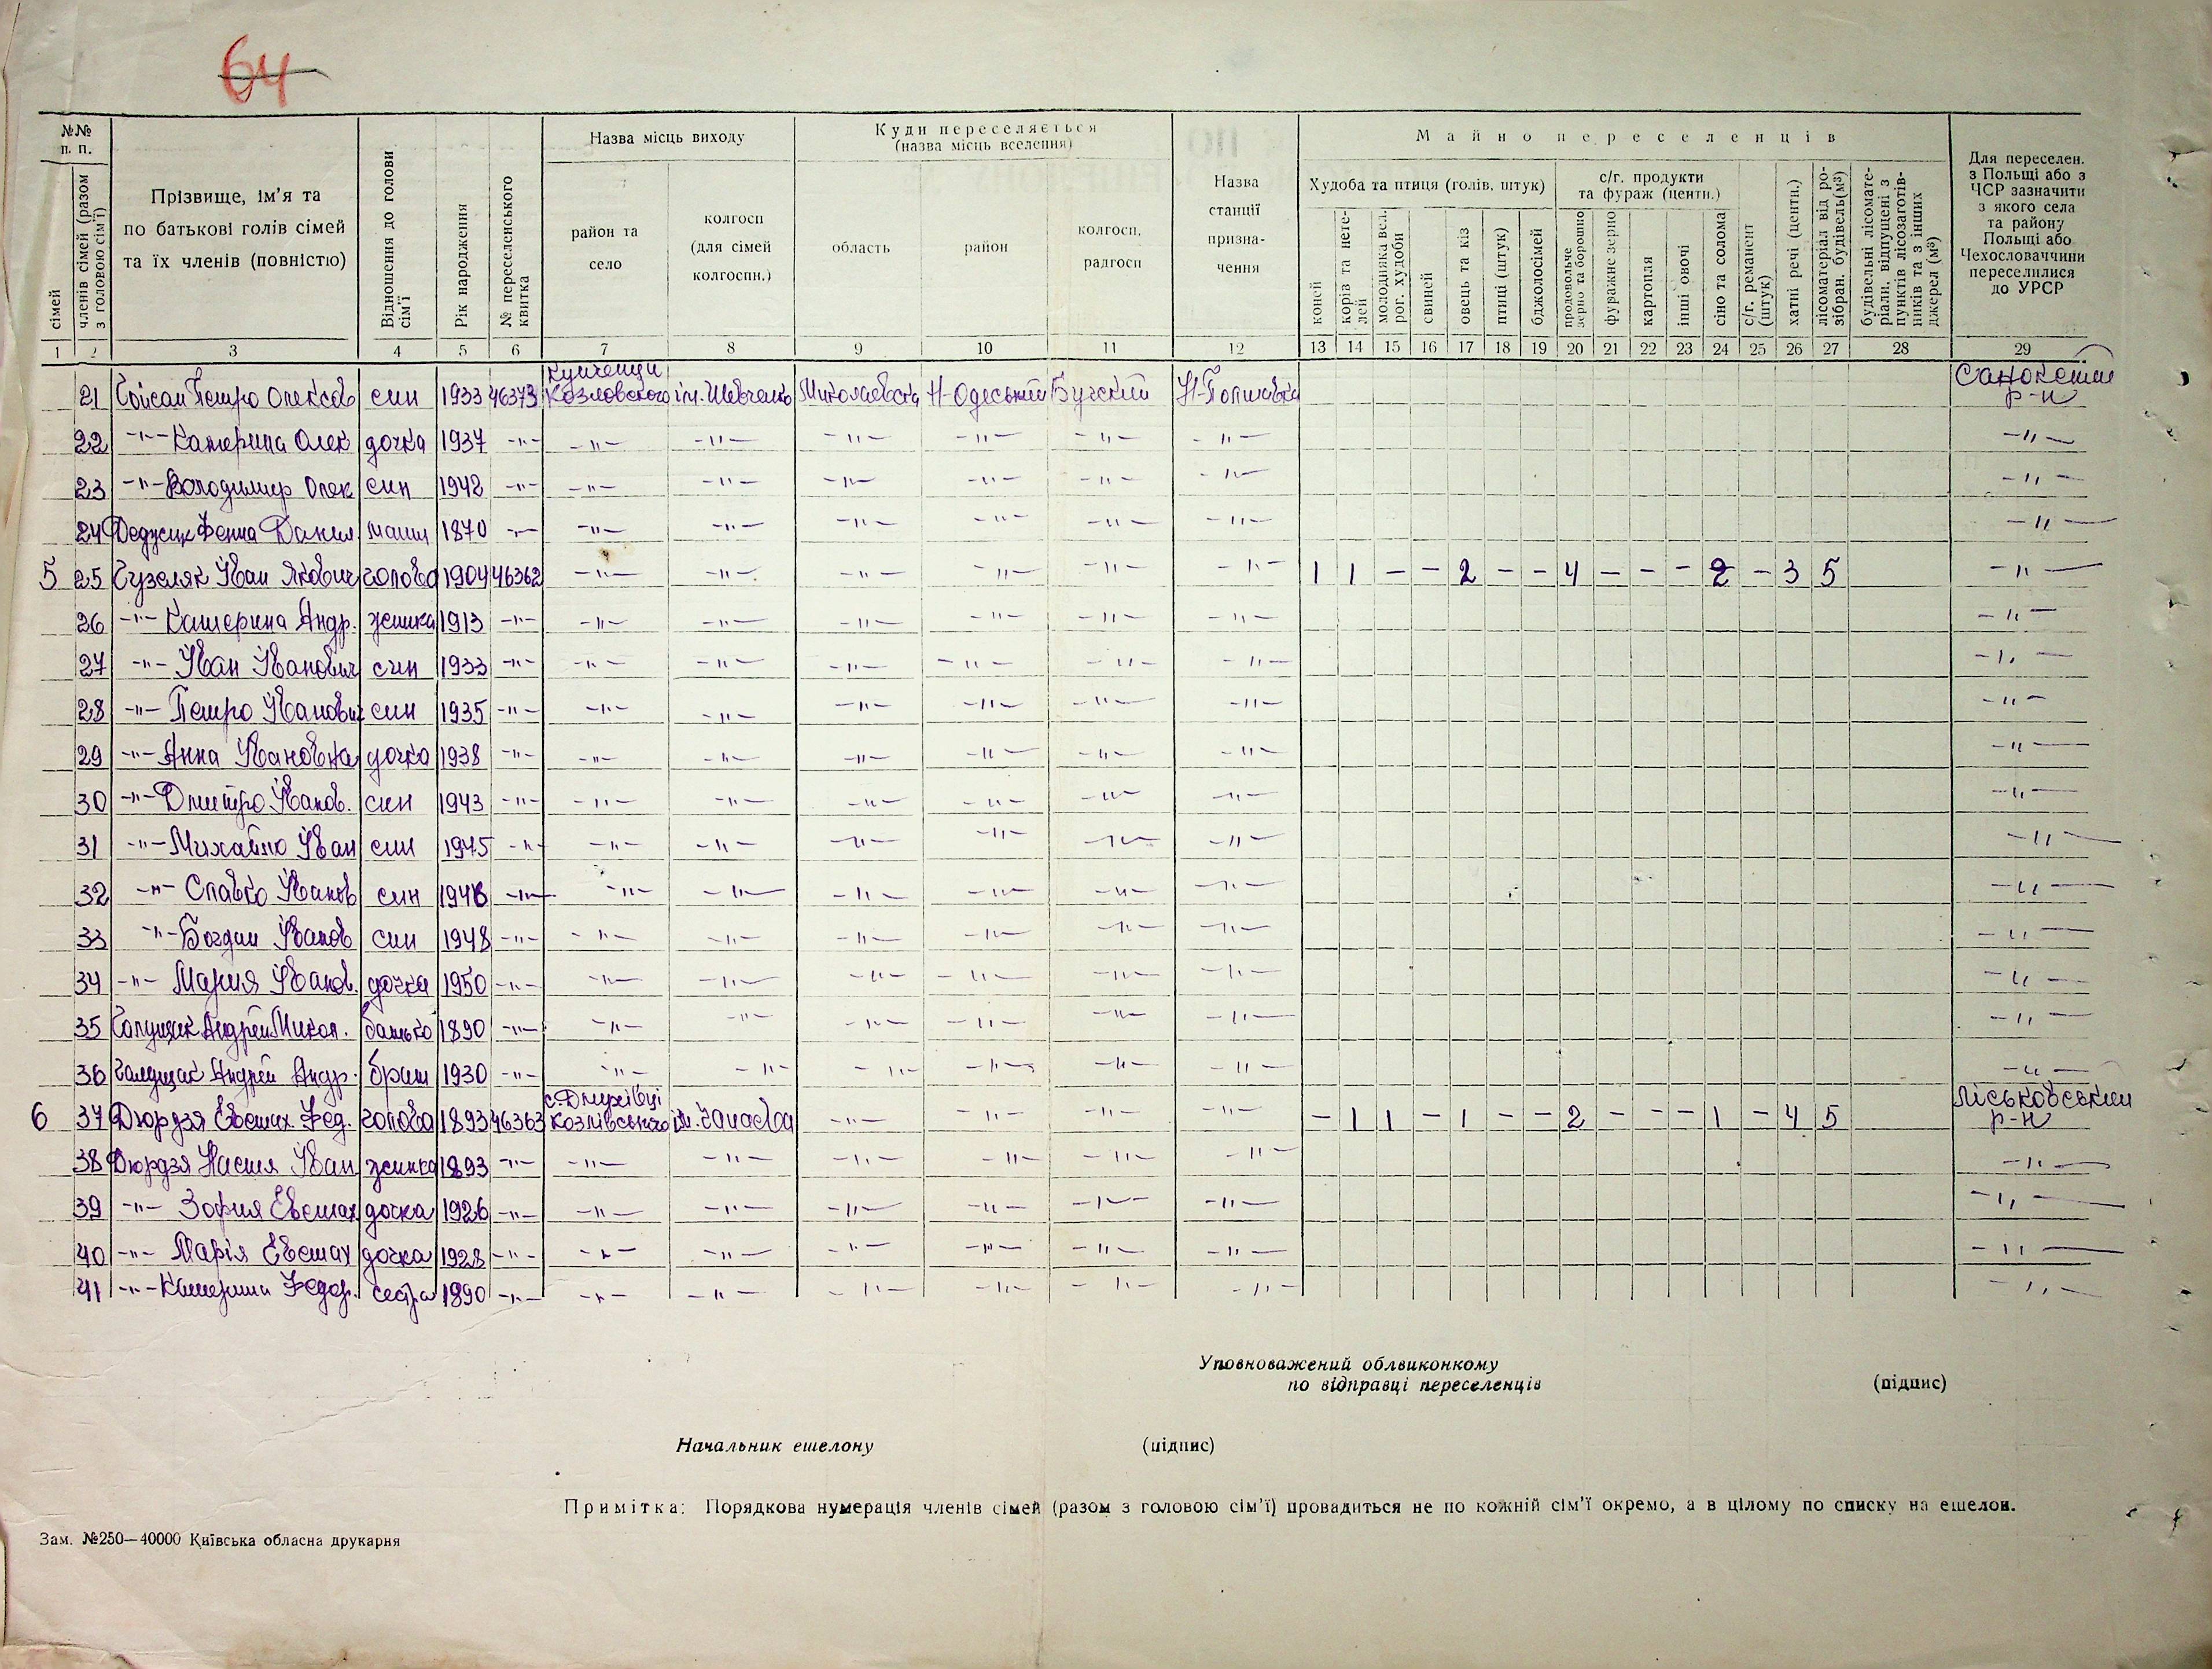 64
№№ п. п.
сімей
членів сімей (разом з головою сім'ї)
Прізвище, ім'я та
по батькові голів сімей
та їх членів (повністю)
Відношення до голови сім'ї
Рік народження
№ переселенського квитка
Назва місць виходу
район та
село
колгосп
(для сімей
колгоспн.)
Куди переселяється
(назва місць вселення)
область
район
колгосп,
радгосп
Назва
станції
призна-
чення
Майно переселенців
Худоба та птиця (голів, штук)
коней
корів та нете-
лей
молодняка вел.
рог. худоби
свиней
овець та кіз
птиці (штук)
бджолосімей
с/г. продукти
та фураж (центн.)
продовольче
зерно та борошно
фуражне зерно
картопля
інші овочі
сіно та солома
с/г. реманент
(штук)
хатні речі (центн.)
лісоматеріал від ро-
зібран. будівель (м³)
будівельні лісомате-
ріали, відпущені з
пунктів лісозаготів-
ників та з інших
джерел (м³)
Для переселен.
з Польщі або з
ЧСР зазначити
з якого села
та району
Польщі або
Чехословаччини
переселилися
до УРСР
1 2 3 4 5 6 7 8 9 10 11 12 13 14 15 16 17 18 19 20 21 22 23 24 25 26 27 28 29
21 Петро син 1933 46373 Козловского ім. Шевченко Миколаевска Н-Одеський Бугский р-н
22 -"- Катерина Олек дочка 1937 -"- -"- -"- -"- -"- -"- -"- -"-
23 -"- Володимир Олек син 1942 -"- -"- -"- -"- -"- -"- -"- -"-
24 Данил мати 1870 -"- -"- -"- -"- -"- -"- -"- -"-
5 25 Гузеляк Іван Якович голова 1904 46362 -"- -"- -"- -"- -"- -"- 1 1 - - 2 - - 4 - - - 2 - 3 5 -"-
26 -"- Катерина Андр. жінка 1913 -"- -"- -"- -"- -"- -"- -"- -"-
27 -"- Іван Іванович син 1933 -"- -"- -"- -"- -"- -"- -"- -"-
28 -"- Петро Іванович син 1935 -"- -"- -"- -"- -"- -"- -"- -"-
29 -"- Анна Івановна дочка 1938 -"- -"- -"- -"- -"- -"- -"- -"-
30 -"- Дмитро Іванов. син 1943 -"- -"- -"- -"- -"- -"- -"- -"-
31 -"- Михайло Іван син 1945 -"- -"- -"- -"- -"- -"- -"- -"-
32 -"- Славко Іванов син -"- -"- -"- -"- -"- -"- -"- -"-
33 -"- Богдан Іванов син 1948 -"- -"- -"- -"- -"- -"- -"- -"-
34 -"- Мария Іванов. дочка 1950 -"- -"- -"- -"- -"- -"- -"- -"-
35 Андрей Микол. батько 1890 -"- -"- -"- -"- -"- -"- -"- -"-
36 Андрей Андр. брат 1930 -"- -"- -"- -"- -"- -"- -"- -"-
6 37 Дюрдзя Евстах Фед. голова 1893 46363 Козлівського ім. Чапаєва -"- -"- -"- -"- - 1 1 - 1 - - 2 - - - 1 - 4 5 Ліськовський р-н
38 Дюрдзя Настя Іван жінка 1893 -"- -"- -"- -"- -"- -"- -"- -"-
39 -"- Зофия Евстах дочка 1926 -"- -"- -"- -"- -"- -"- -"- -"-
40 -"- Марія Евстах дочка 1928 -"- -"- -"- -"- -"- -"- -"- -"-
41 -"- Катерина Федор. сестра 1890 -"- -"- -"- -"- -"- -"- -"- -"-
Уповноважений облвиконкому
по відправці переселенців (підпис)
Начальник ешелону (підпис)
Примітка: Порядкова нумерація членів сімей (разом з головою сім'ї) провадиться не по кожній сім'ї окремо, а в цілому по списку на ешелон.
Зам. №250—40000 Київська обласна друкарня